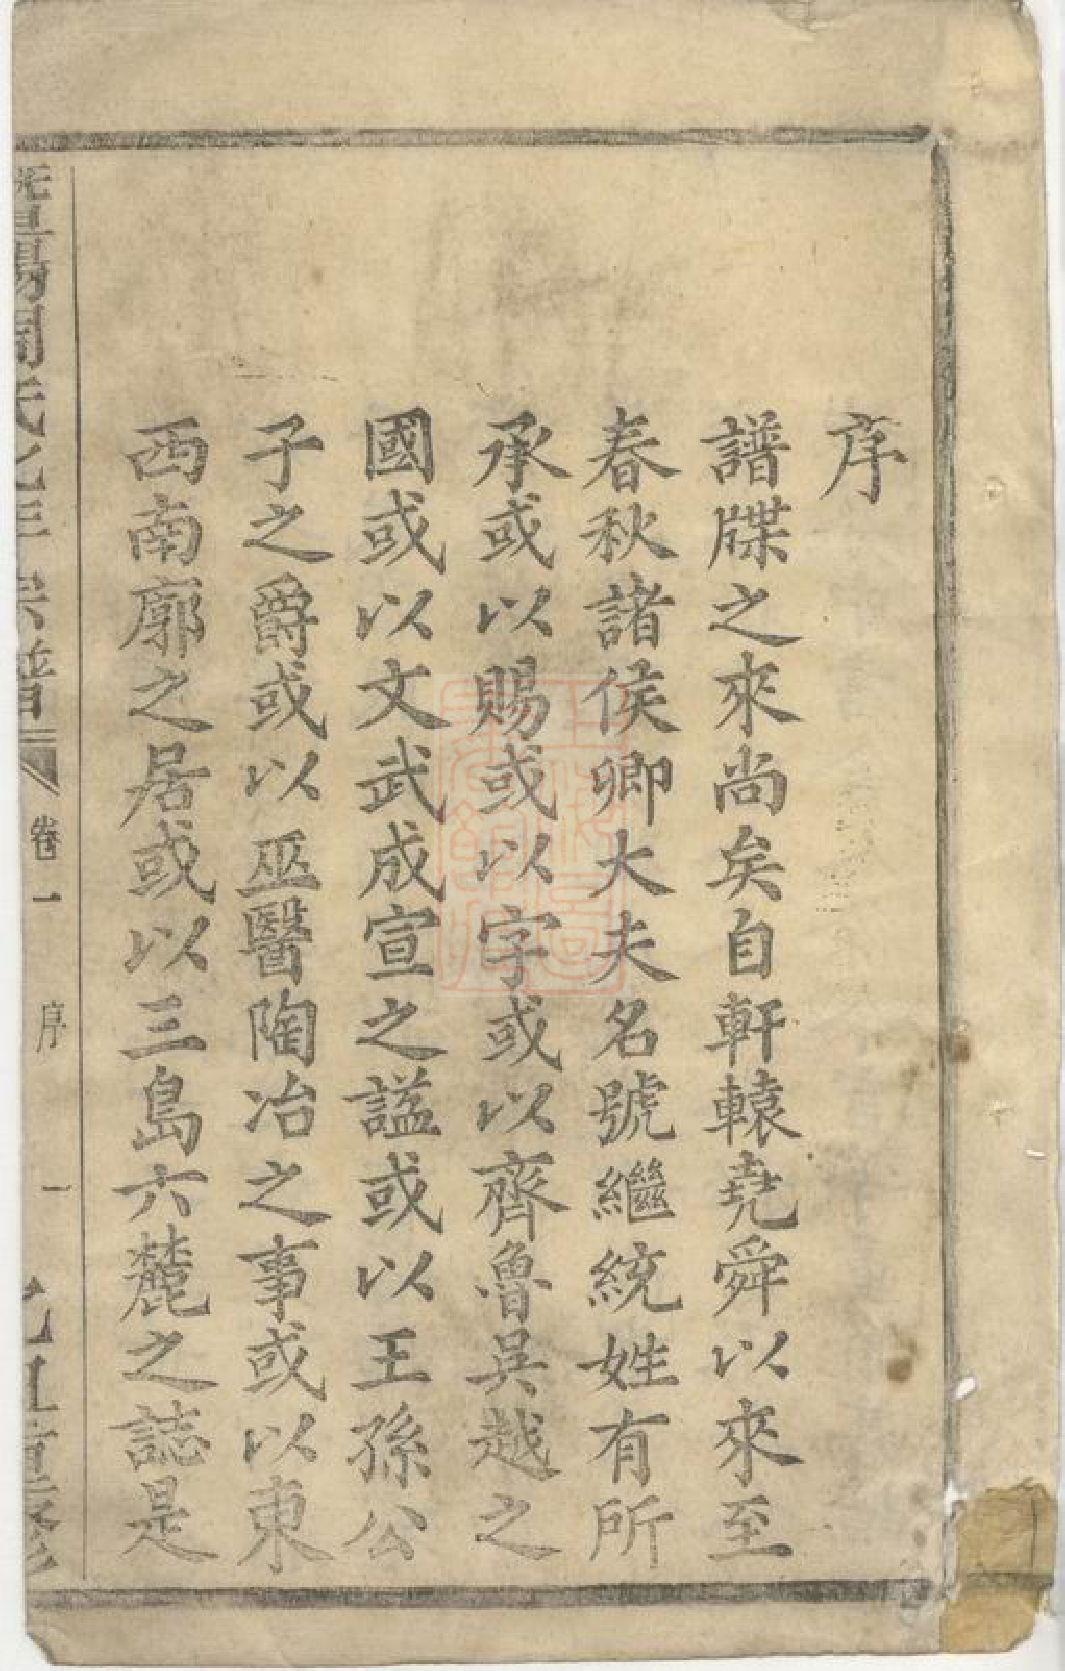 序
譜牒之來尚矣自軒轅堯舜以來至
春秋諸侯卿大夫名號繼統姓有所
承或以賜或以字或以齊魯吳越之
國或以文武成宣之謚或以王孫公
子之爵或以巫醫陶冶之事或以東
西南廓之居或以三島六麓之誌是
陽周氏宗譜
卷一
序
一